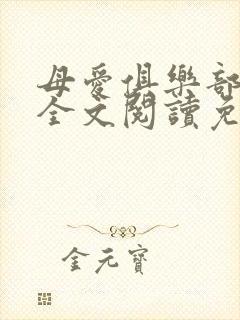 母愛俱樂部
全文閱讀免
金元寶